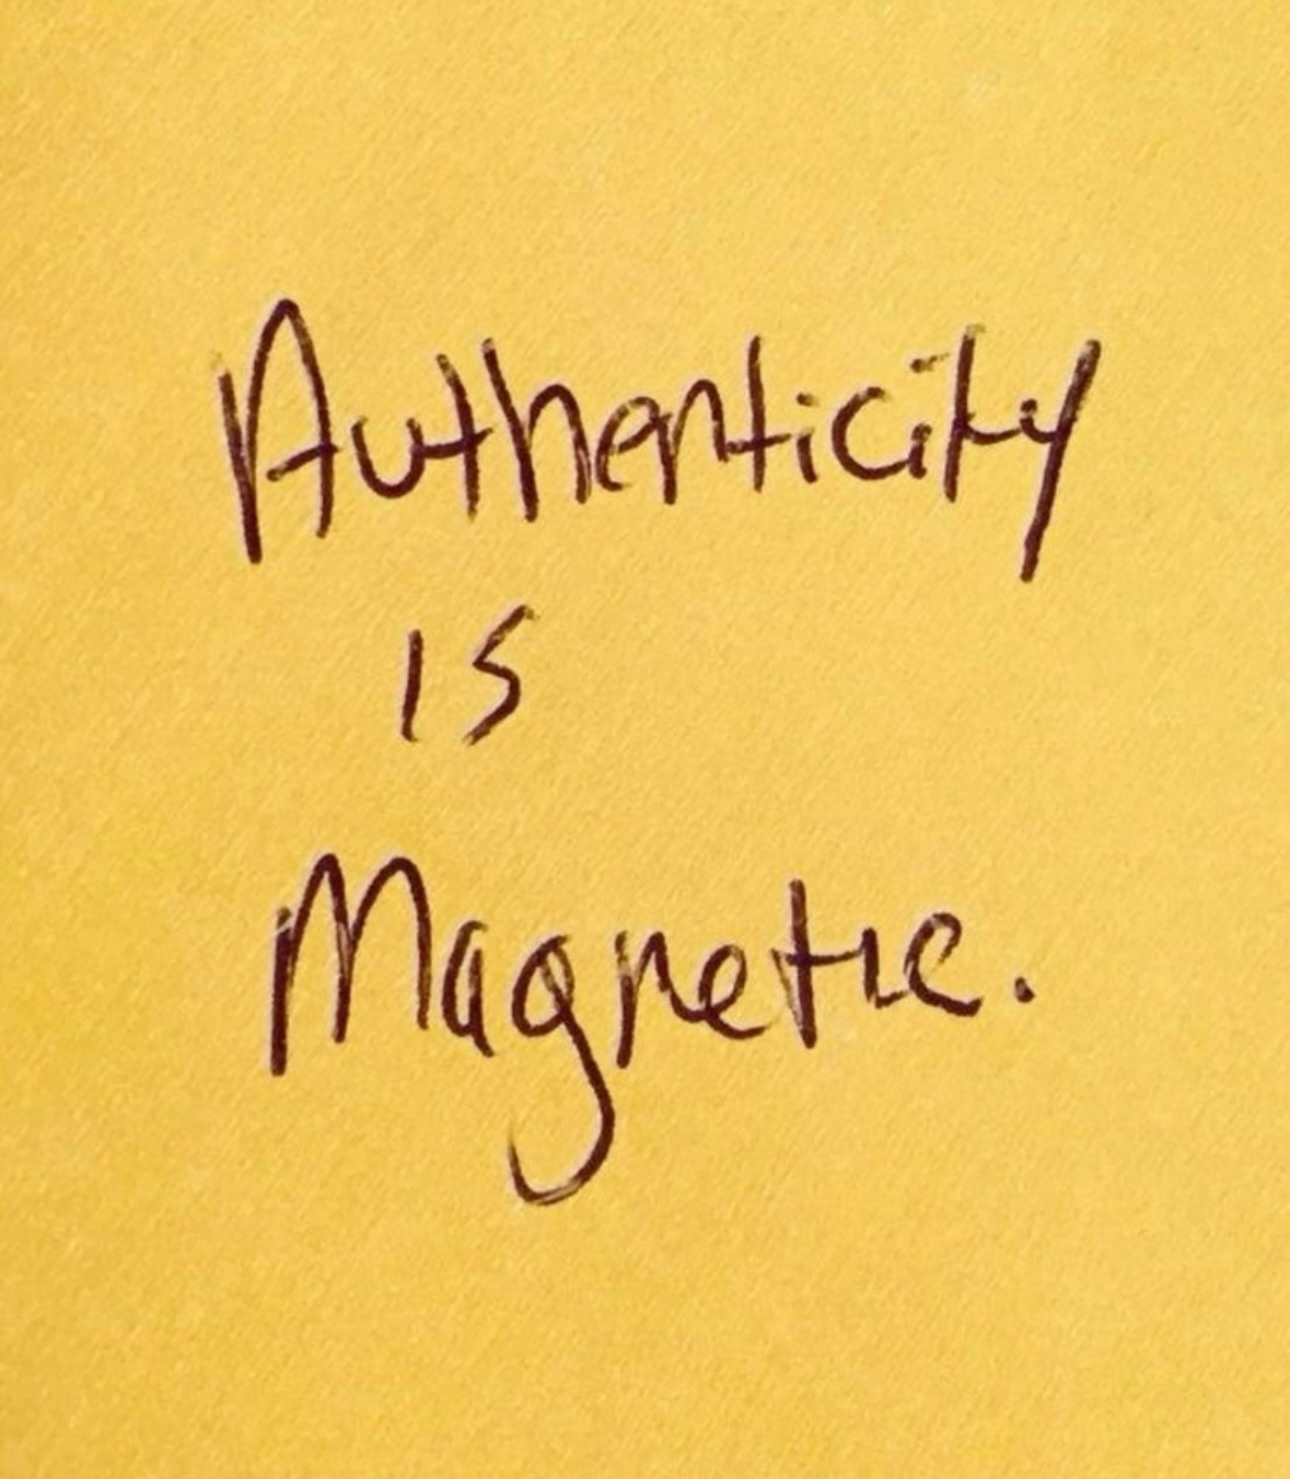 Authenticity
is
Magnetic.